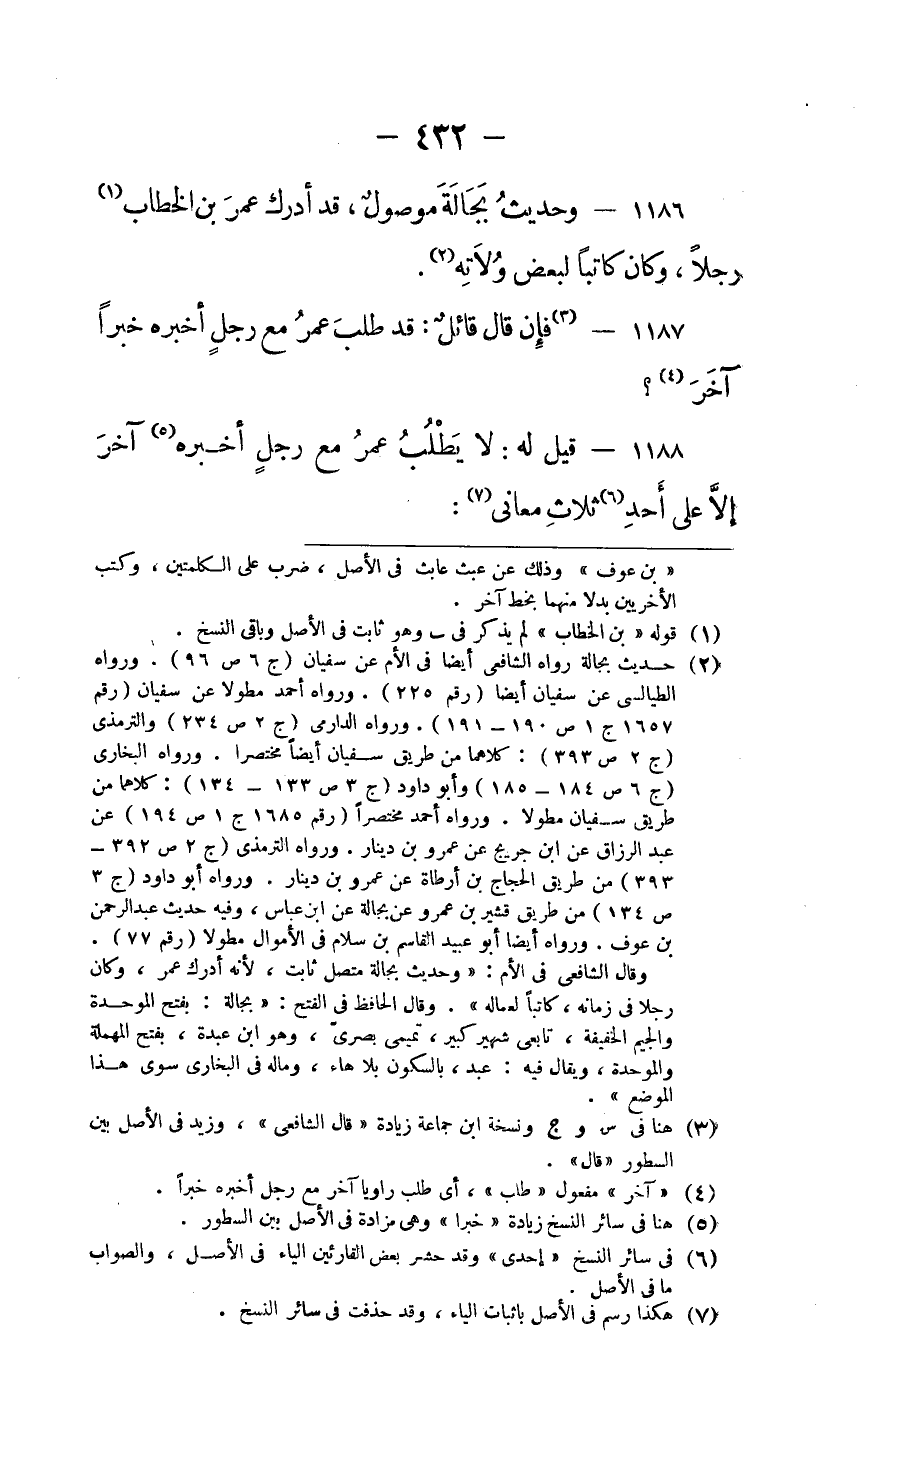 — ٤٣٢ —
١١٨٦ — وحديثُ بَجَالَةَ موصولٌ ، قد أدرك عمرَ بن الخطاب(١)
رجلاً ، وكان كاتباً لبعض وُلاَتِه(٢) .
١١٨٧ — (٣)فإن قال قائلٌ : قد طلبَ عمرُ مع رجلٍ أخبره خبراً
آخَرَ(٤) ؟
١١٨٨ — قيل له : لا يَطْلُبُ عمرُ مع رجلٍ أخـبره(٥) آخرَ
إلاَّ على أَحدِ(٦) ثلاثِ معانى(٧) :
« بن عوف » وذلك عن عبث عابث فى الأصل ، ضرب على الـكلمتين ، وكتب
الأخريين بدلا منهما بخط آخر .
(١) قوله « بن الخطاب » لم يذكر فى ب وهو ثابت فى الأصل وباقى النسخ .
(٢) حـديث بجالة رواه الشافعى أيضا فى الأم عن سفيان (ج ٦ ص ٩٦) . ورواه
الطيالسى عن سفيان أيضا (رقم ٢٢٥) . ورواه أحمد مطولا عن سفيان (رقم
١٦٥٧ ج ١ ص ١٩٠ — ١٩١) . ورواه الدارمى (ج ٢ ص ٢٣٤) والترمذى
(ج ٢ ص ٣٩٣) : كلاهما من طريق سـفيان أيضاً مختصرا . ورواه البخارى
(ج ٦ ص ١٨٤ — ١٨٥) وأبو داود (ج ٣ ص ١٣٣ — ١٣٤) : كلاهما من
طريق سـفيان مطولا . ورواه أحمد مختصراً (رقم ١٦٨٥ ج ١ ص ١٩٤) عن
عبد الرزاق عن ابن جريج عن عمرو بن دينار . ورواه الترمذى (ج ٢ ص ٣٩٢ —
٣٩٣) من طريق الحجاج بن أرطاة عن عمرو بن دينار . ورواه أبو داود (ج ٣
ص ١٣٤) من طريق قشير بن عمرو عن بجالة عن ابن عباس ، وفيه حديث عبدالرحمن
بن عوف . ورواه أيضا أبو عبيد القاسم بن سلام فى الأموال مطولا (رقم ٧٧) .
وقال الشافعى فى الأم : « وحديث بجالة متصل ثابت ، لأنه أدرك عمر ، وكان
رجلا فى زمانه ، كاتباً لعماله » . وقال الحافظ فى الفتح : « بجالة : بفتح الموحـدة
والجيم الخفيفة ، تابعى شهير كبير ، تميمى بصرىّ ، وهو ابن عبدة ، بفتح المهملة
والموحدة ، ويقال فيه : عبد ، بالسكون بلا هاء ، وماله فى البخارى سوى هـذا
الموضع » .
(٣) هنا فى س و ج ونسخة ابن جماعة زيادة « قال الشافعى » ، وزيد فى الأصل بين
السطور «قال» .
(٤) « آخر » مفعول « طاب » ، أى طلب راويا آخر مع رجل أخبره خبراً .
(٥) هنا فى سائر النسخ زيادة « خبرا » وهى مزادة فى الأصل بين السطور .
(٦) فى سائر النسخ « إحدى » وقد حشر بعض القارئين الياء فى الأصـل ، والصواب
ما فى الأصل .
(٧) هكذا رسم فى الأصل باثبات الياء ، وقد حذفت فى سائر النسخ .